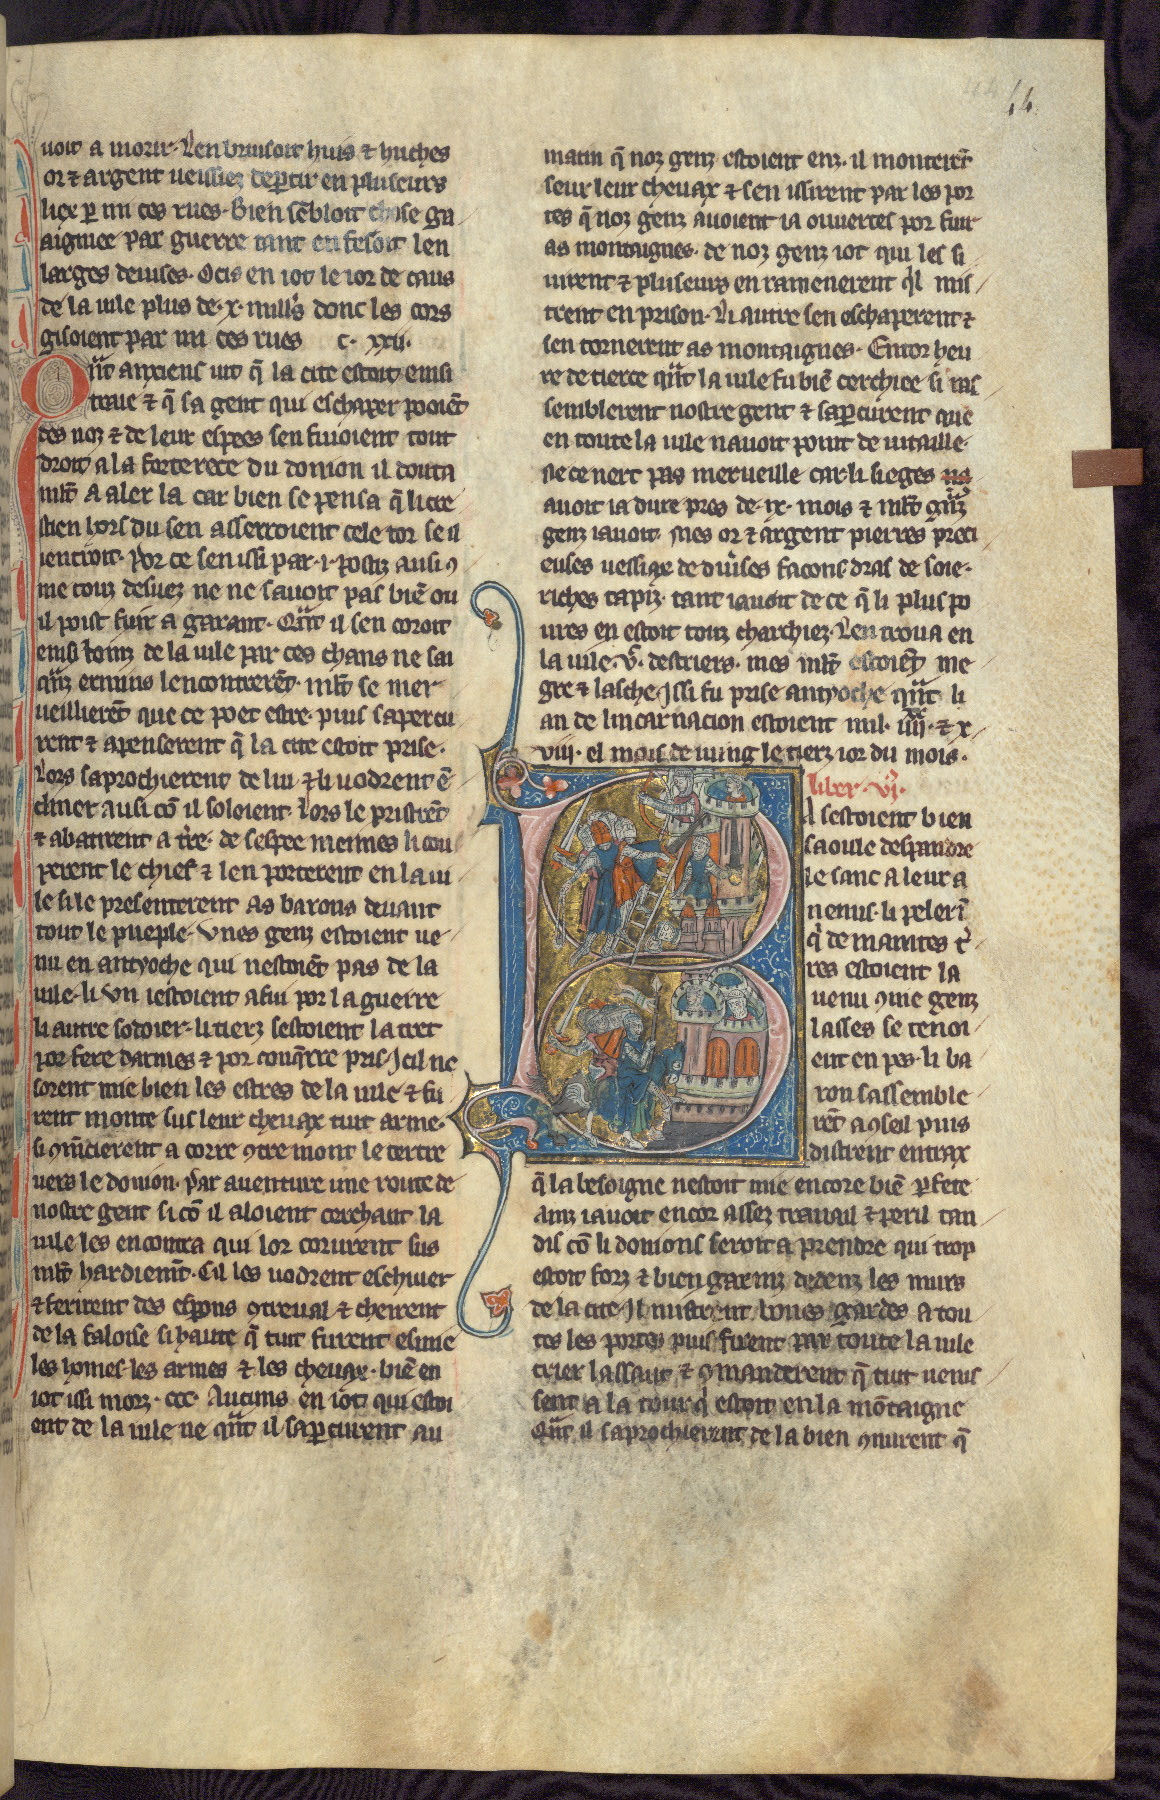 44
uoit a morir. Len brusoit huis ⁊ huches
or ⁊ argent ueissiez dep̱tir en pluseurs
liex ꝑ mi ces rues. Bien sẽbloit chose ga
aigniee par guerre tant en fesoit len
larges deuises. Ocis en iot le ior de ceus
de la uile plus de .x. mill's donc les cors
gisoient par mi ces rues c. xxii.
Qũt anxiens uit q̃ la cite estoit einsi
traie ⁊ q̃ sa gent qui eschaper pooiẽt
des noz ⁊ de leur espees sen fuioient tout
droit a la forterece du donion il douta
ml't a aler la car bien se pensa q̃ li cre
stien hors du sen asserroient cele tor se il
ientroit. Por ce sen issi par .i. postiz ausi ꝯ
me touz desuez ne ne sauoit pas biẽ ou
il poist fuir a garant. Qũt il sen coroit
einsi touz de la uile par ces chans ne sai
qũz ermins lencontrerẽt. ml't se mer
ueillierẽt que ce poet estre. puis sapercu
rent ⁊ apenserent q̃ la cite estoit prise.
Lors saprochierent de lui ⁊ li uodrent ẽ
cliner ausi cõ il soloient. Lors le pristrẽt
⁊ abatirent a t're. de sespee meimes li cou
perent le chief ⁊ len porterent en la ui
le si le presenterent as barons deuant
tout le pueple. Vnes genz estoient ue
nu en antyoche qui nestoiẽt pas de la
uile. li vn iestoient afui por la guerre
li autre sodoier. li tierz sestoient la tret
por fere darmes ⁊ por conq̃rre pris. Icil ne
sorent mie bien les estres de la uile ⁊ fu
rent monte sus leur cheuax tuit arme.
si ꝯm̃cierent a corre ꝯtre mont le tertre
uers le donion. Par auenture une route de
nostre gent si cõ il aloient cerchant la
uile les encontra qui lor corurent sus
ml't hardiemt̃. Cil les uodrent eschiuer
⁊ ferirent des esp̱ons ꝯtreual ⁊ cheirent
de la faloise si haute q̃ tuit furent esmie
les homes. les armes ⁊ les cheuax. biẽ en
iot issi morz. ccc. Aucuns en iot qui estoi
ent de la uile ne qũt il sap̱curent au
matin q̃ noz genz estoient enz. il monterẽt
seur leur cheuax ⁊ sen issirent par les por
tes q̃ noz genz auoient ia ouuertes por fuir
as montaignes. de noz genz iot qui les si
uirent ⁊ pluseurs en ramenerent q̃l mis
trent en prison. Li autre sen eschaperent ⁊
sen tornerent as montaignes. Entor heu
re de tierce qũt la uile fu biẽ cerchiee si ras
semblerent nostre gent ⁊ sap̱curent que
en toute la uile nauoit point de uitaille.
Ne ce nert pas merueille car li sieges na
auoit ia dure pres de .ix. mois ⁊ ml't gũz
genz iauoit. Mes or ⁊ argent pierres preci
euses uessiax de diu'ses facons dras de soie.
riches tapiz. tant iauoit de ce q̃ li plus po
ures en estoit touz charchiez. Len troua en
la uile .v͑. destriers. mes ml't estoiẽt me
gre ⁊ lasche. Issi fu prise antyoche qũt li
an de lincarnacion estoient mil. iiii. ⁊ x
viii. el mois de iuing le tierz ior du mois.
liber .vi'.
A sestoient bien
saoule despandre
le sanc a leur a
nemis. li peleri̇̃
q̃ de maintes t'
res estoient la
uenu ꝯme genz
lasses se tenoi
ent en pes. li ba
ron sassemble
rẽt a ꝯseil puis
distrent entrax
q̃ la besoigne nestoit mie encore biẽ ꝑfete
ainz iauoit encor assez trauail ⁊ peril tan
dis cõ li donions seroit a prendre qui trop
estoit forz ⁊ bien garniz dedenz les murs
de la cite. Il mistrent bones gardes a tou
tes les portes puis firent par toute la uile
crier lassaut ⁊ ꝯmanderent q̃ tuit uenis
sent a la tour q̃ estoit en la mõtaigne
Qũt il saprochierent de la bien ꝯnurent q̃